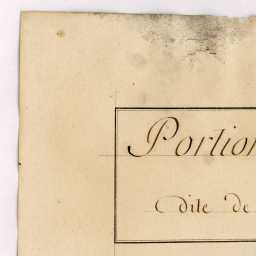 Portion
dite de